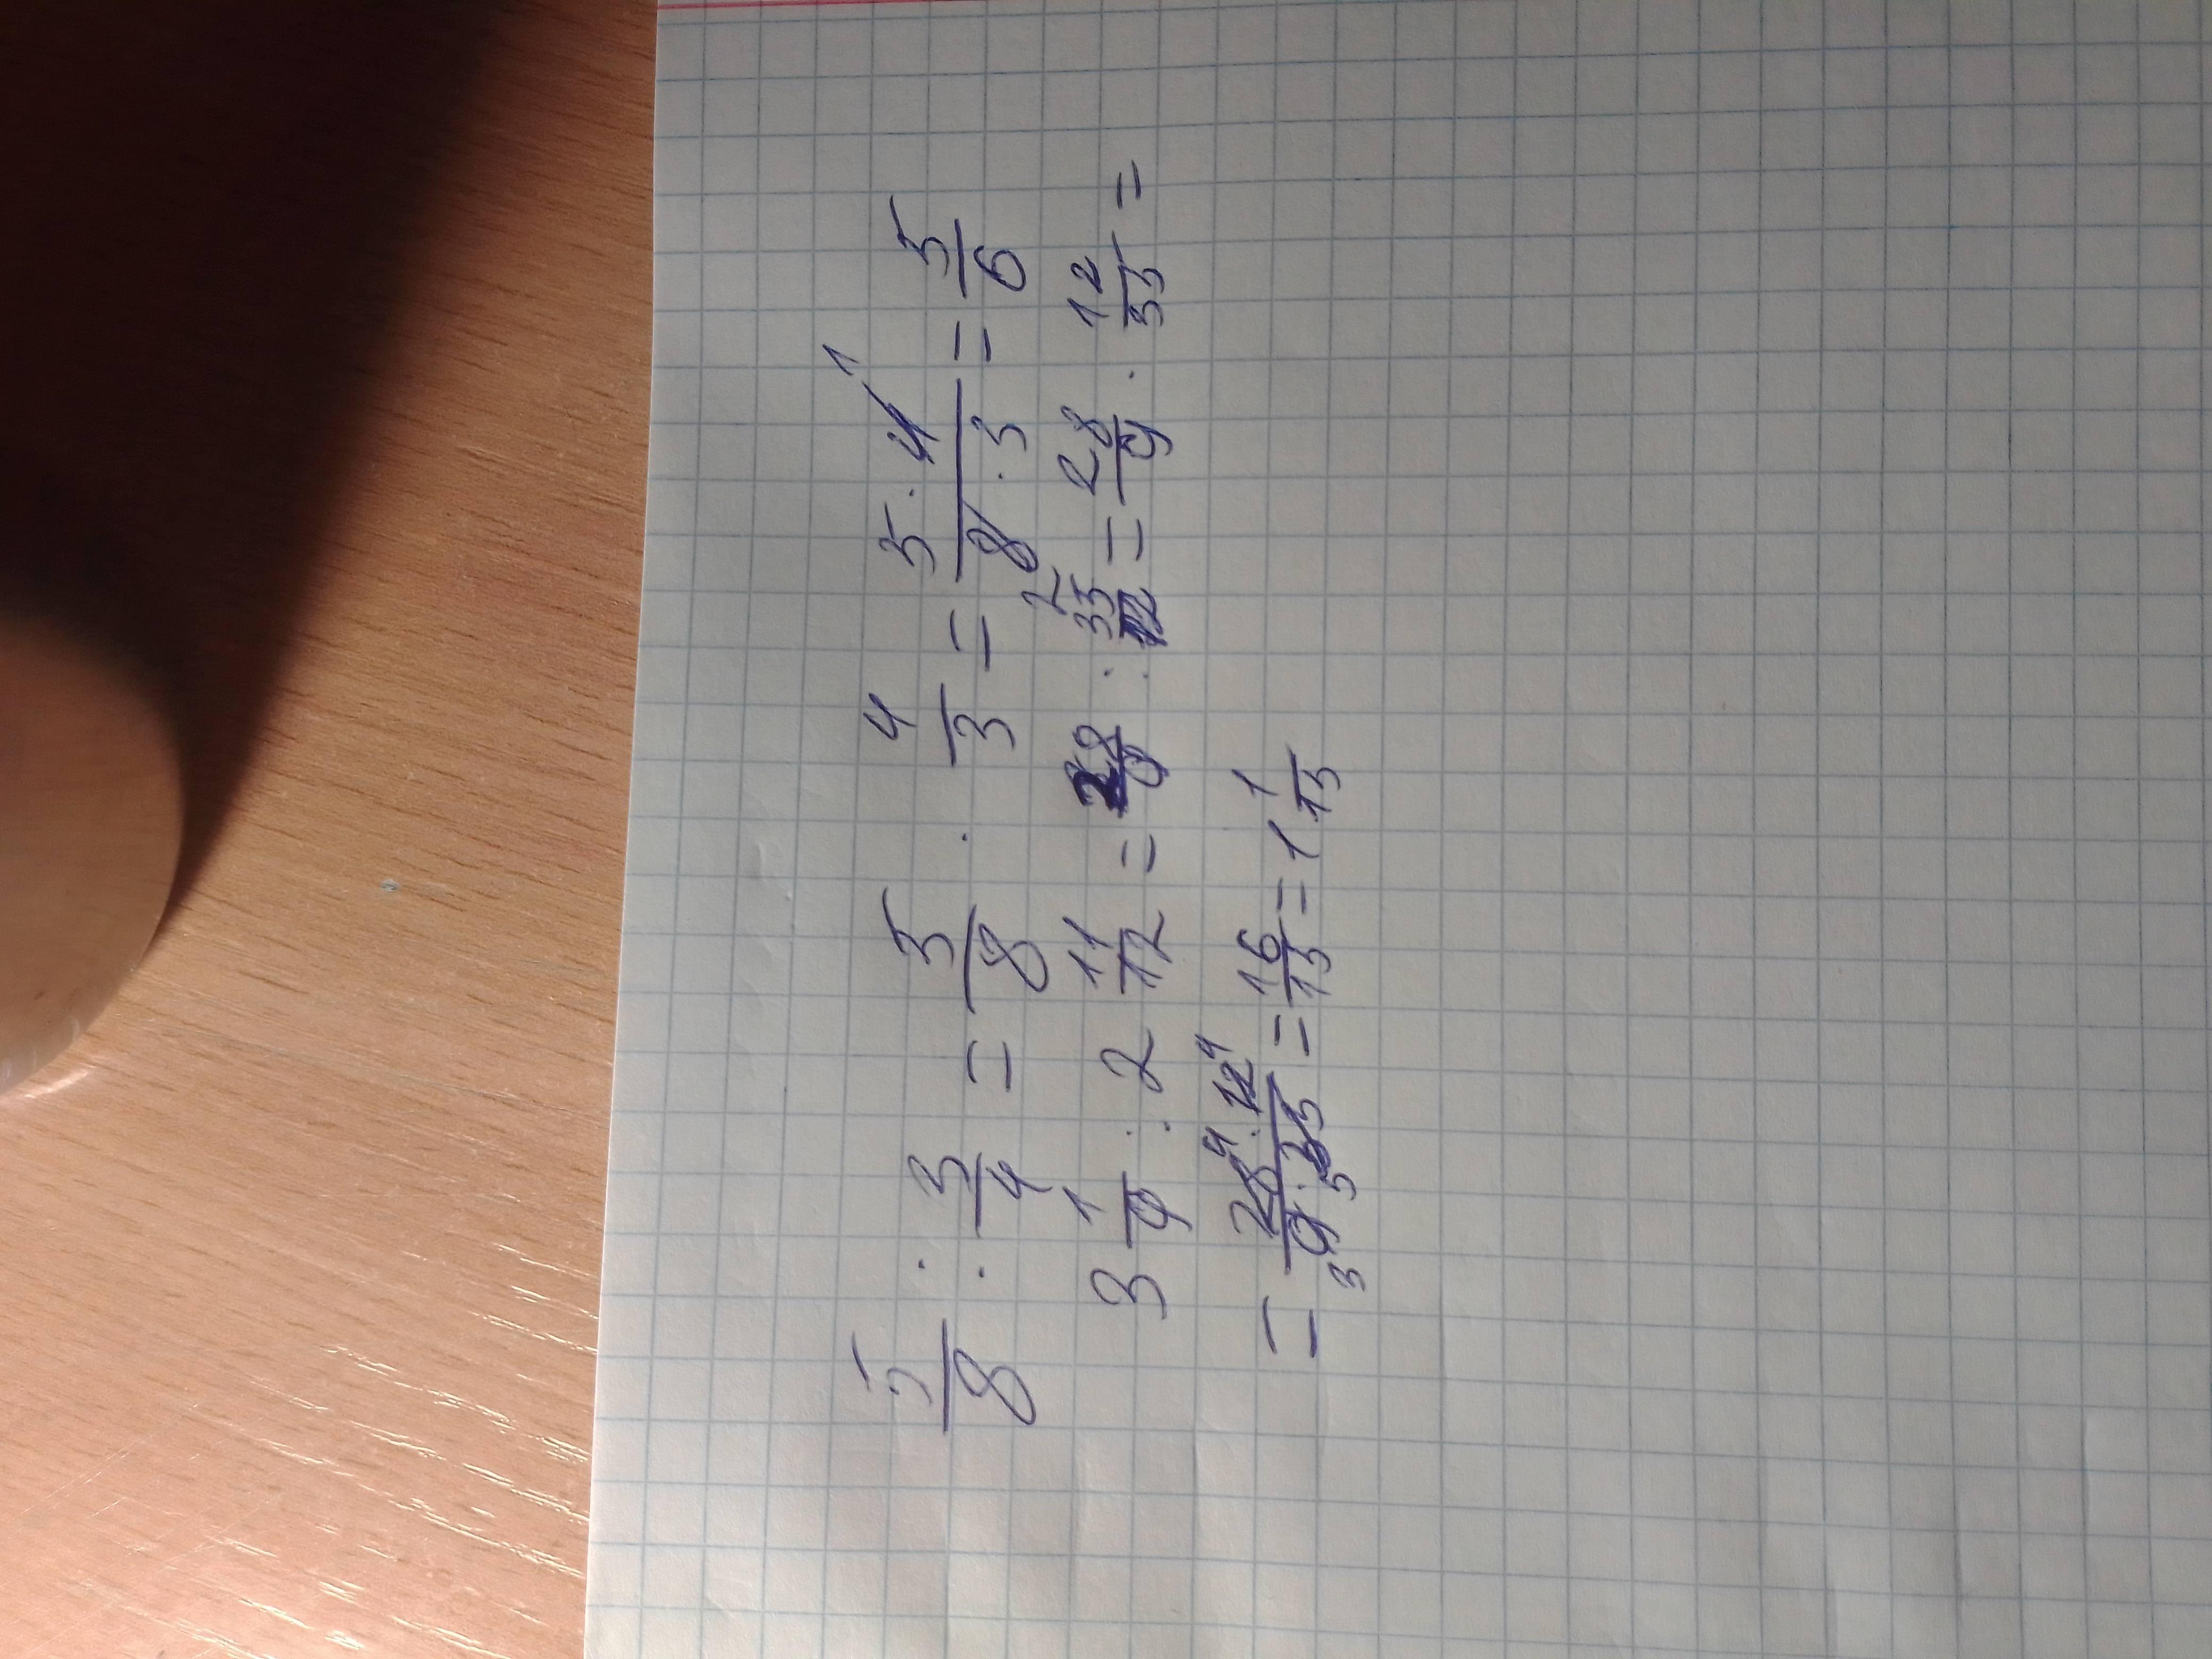 5/8 : 3/4 = 5/8 · 4/3 = 5·4 1/8·3 2 = 5/6
3 1/9 : 2 11/12 = 28/9 : 35/12 = 28/9 · 12/35 =
= 28 4 · 12 4/9 3 · 35 5 = 16/15 = 1 1/15